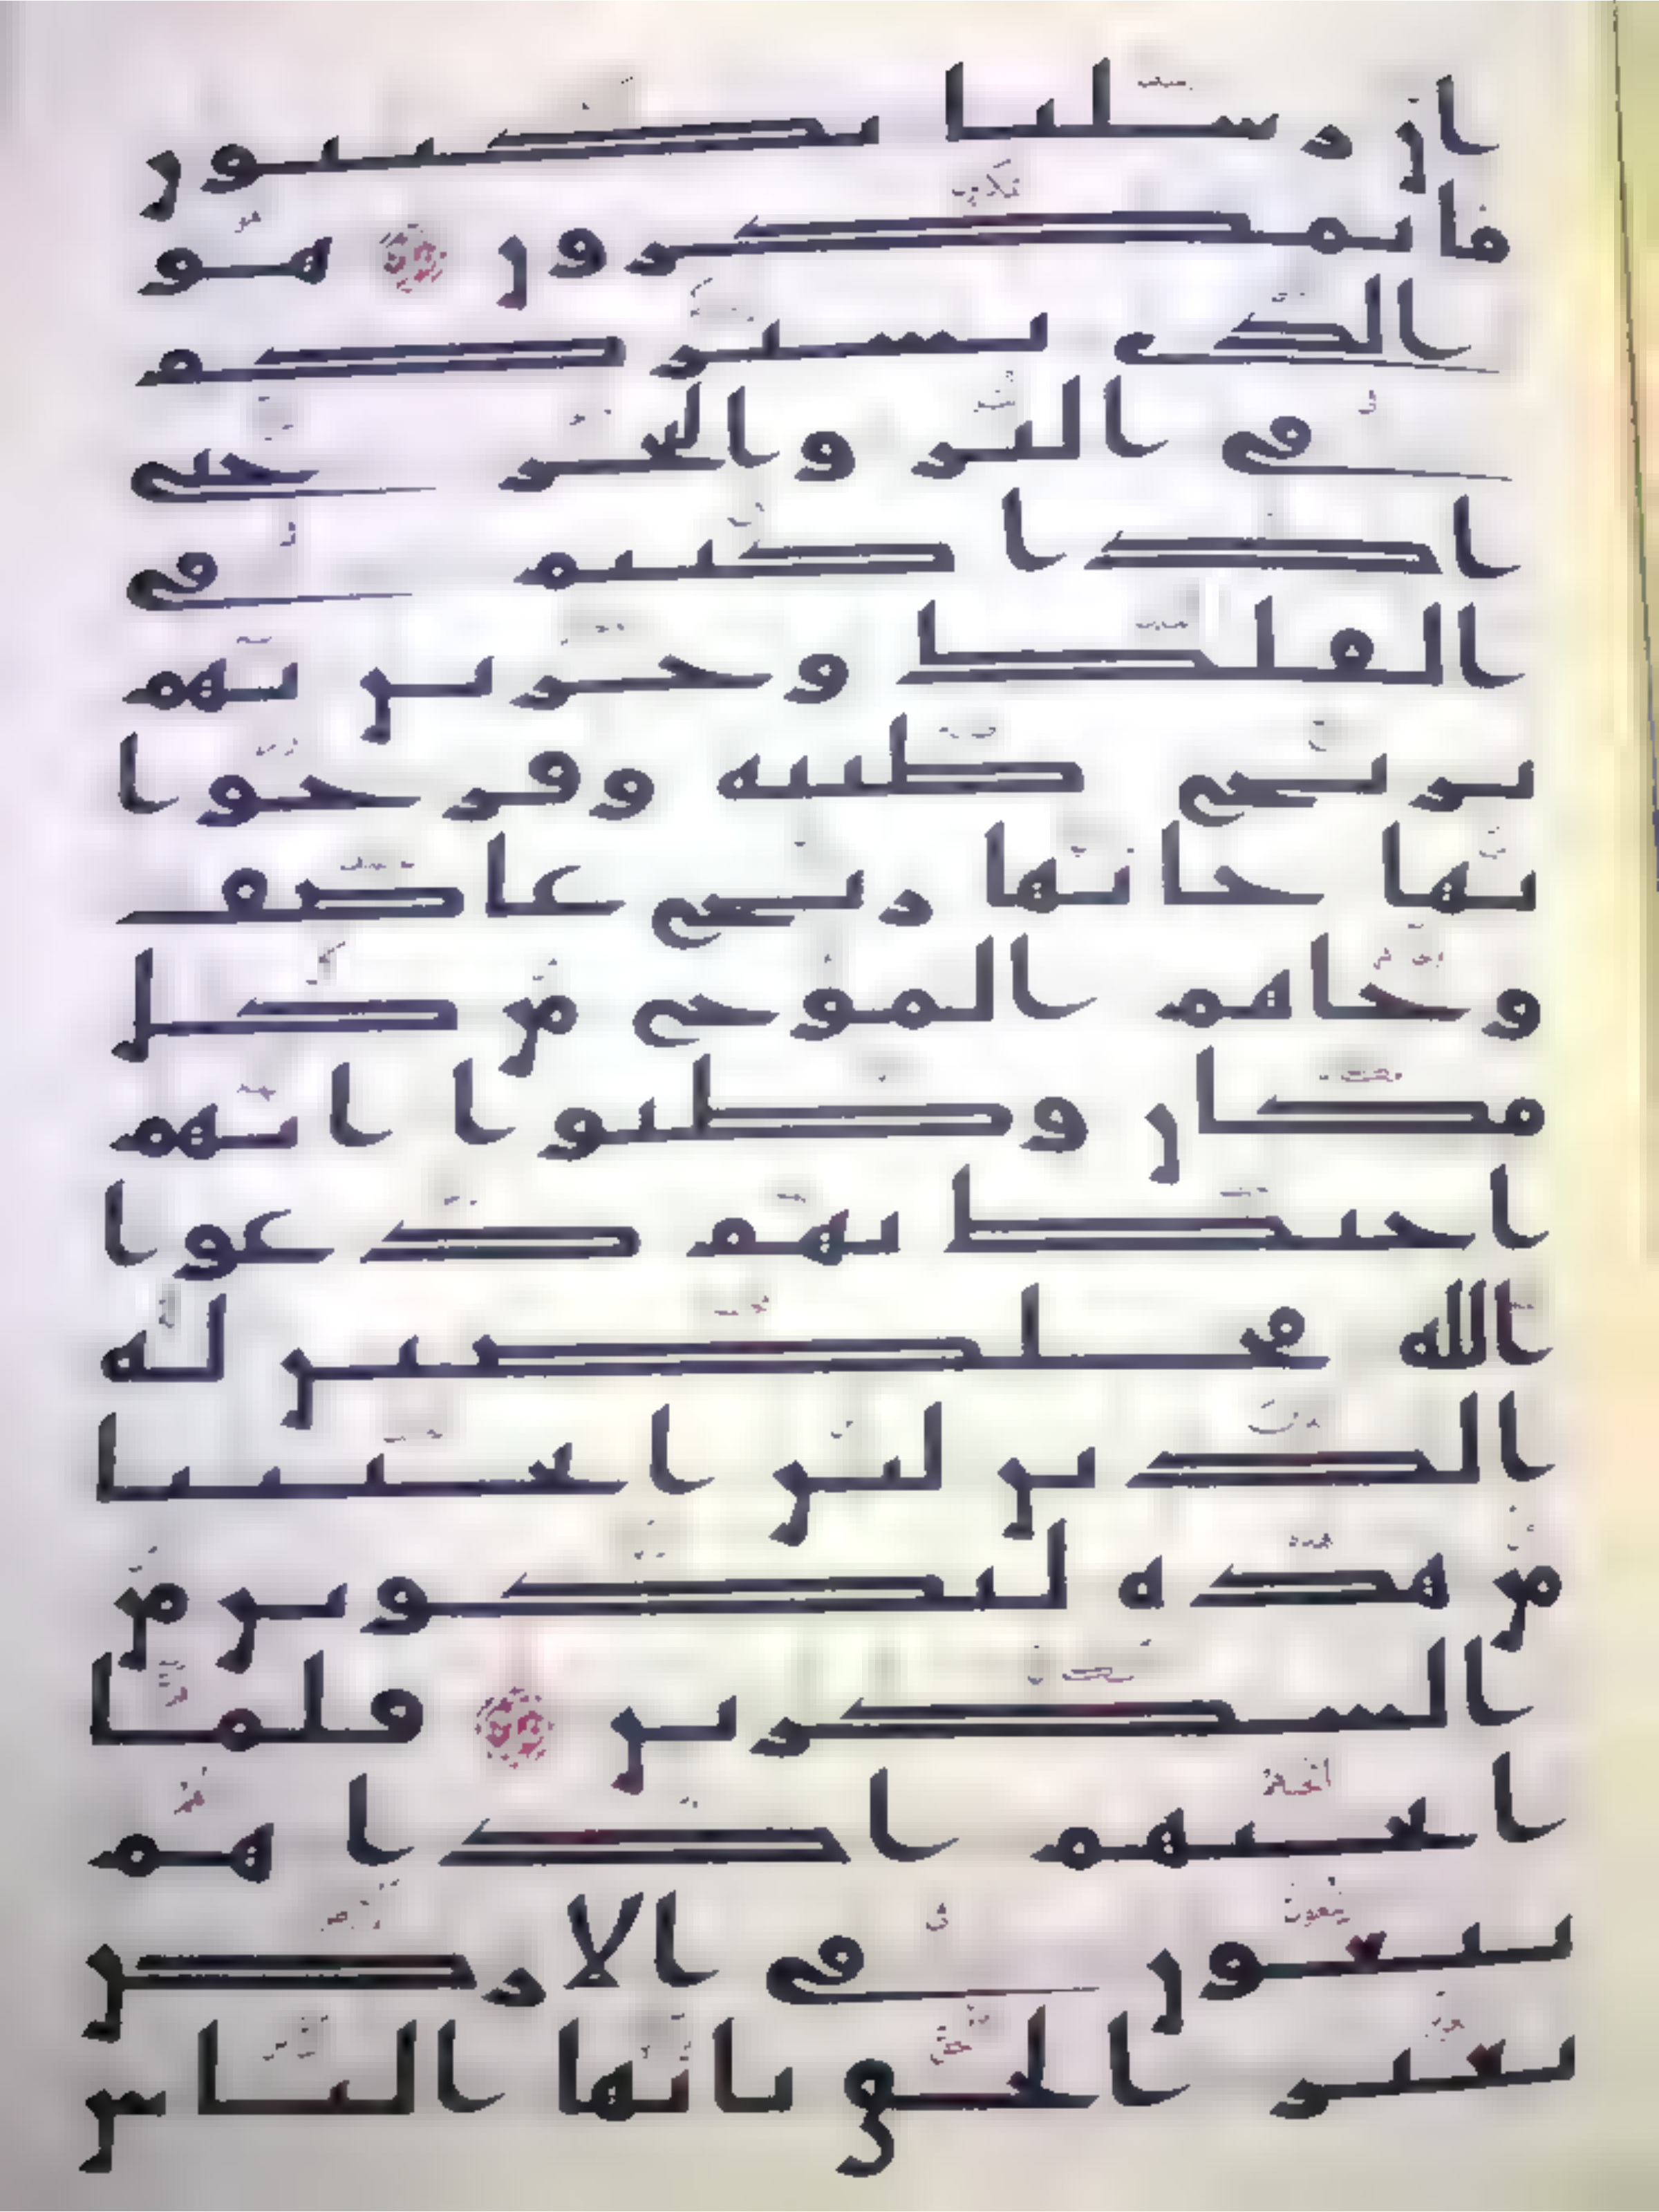 ان رسلنا يكتبون
ما تمكرون هو
الذي يسيركم
في البر والبحر حتى
اذا كنتم في
الفلك وجرين بهم
بريح طيبة وفرحوا
بها جاتها ريح عاصف
وجاهم الموج من كل
مكان وظنوا انهم
احيط بهم دعوا
الله مخلصين له
الدين لئن انجيتنا
من هذه لنكونن من
الشكرين فلما
انجيهم اذا هم
يبغون في الارض
بغير الحق يايها الناس